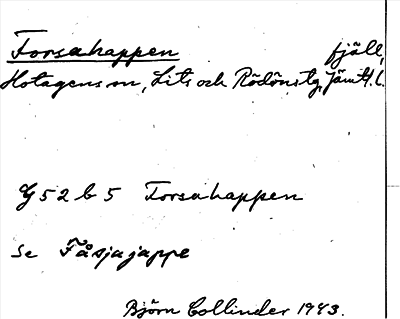 Forsahappen fjäll,
Hotagens sn, Lits och Rödöns tg, Jämtl. l.
G 52 b 5 Forsahappen
Se Fåsjajappe
Björn Collinder 1943.